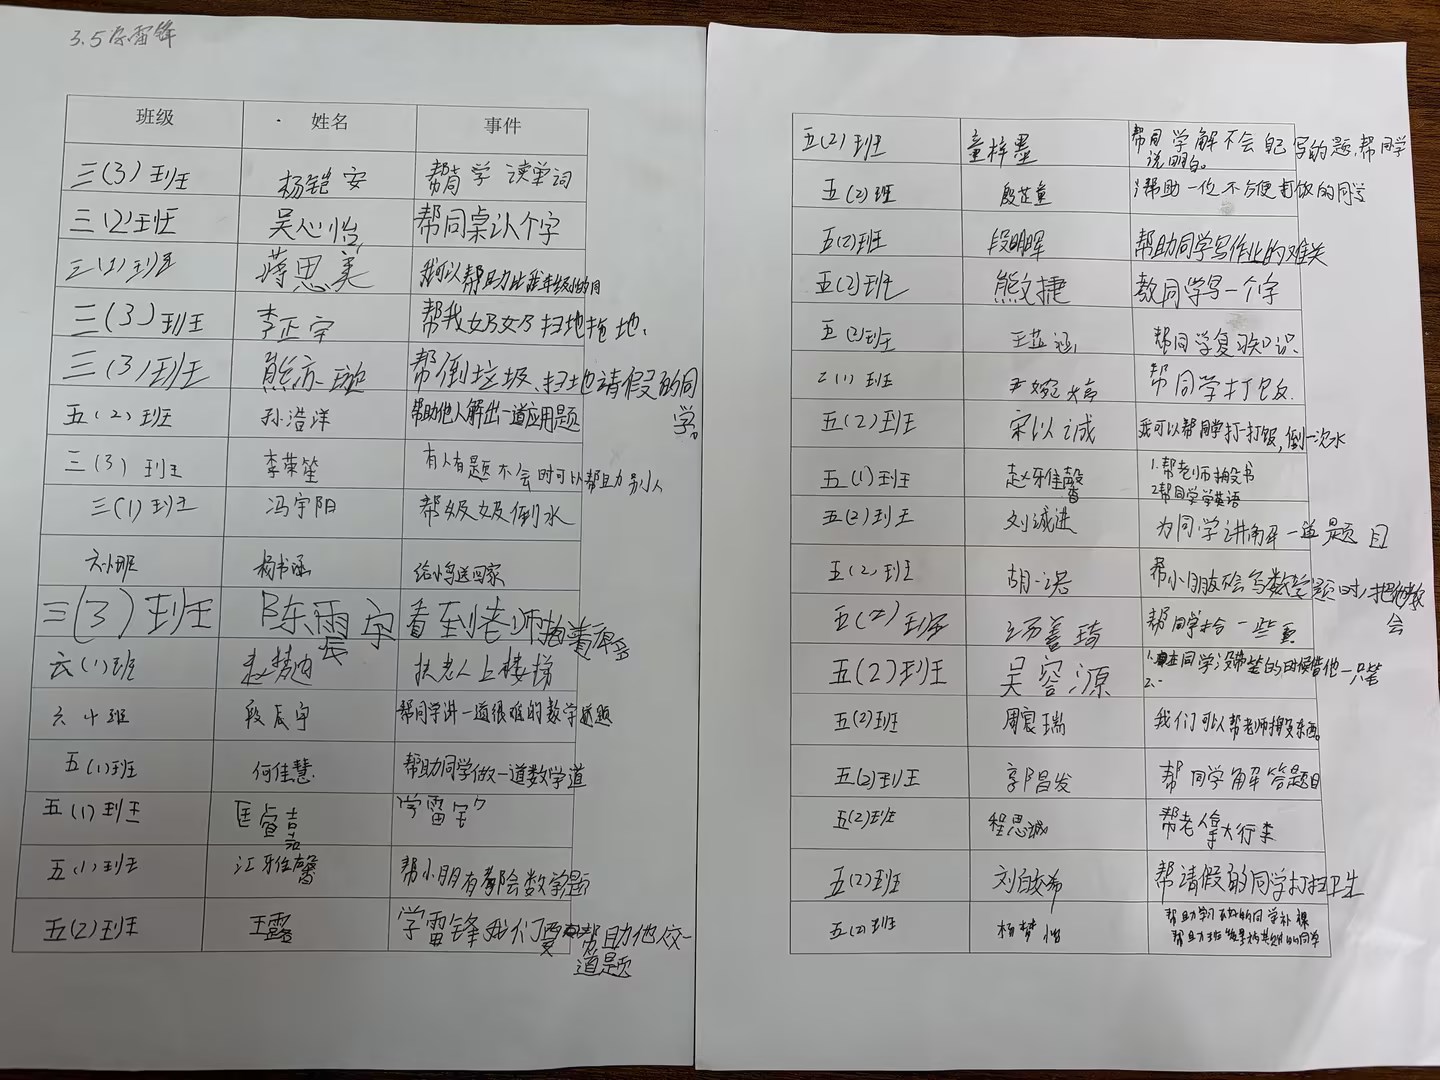 3.5学雷锋
班级 姓名 事件
三(3)班 杨铠安 帮同学读单词
三(2)班 吴心怡 帮同桌认个字
三(2)班 蒋思美 我可以帮助比我年级低的同
三(3)班 李正宇 帮我奶奶扫地拖地、
三(3)班 熊亦 帮倒垃圾、扫地请假的同
学。
五(2)班 孙浩洋 帮助他人解出一道应用题
三(3)班 李荣笙 有人有题不会时可以帮助别人
三(1)班 冯宇阳 帮奶奶倒水
六(1)班 杨书涵 给小鸟送回家
三(3)班 陈雨宸 看到老师抱着很多
六(1)班 赵梦迪 扶老人上楼梯
六(1)班 段辰宇 帮同学讲一道很难的数学题
五(1)班 何佳慧 帮助同学做一道数学道
五(1)班 匡睿喆 学雷
五(1)班 江雅馨 帮小朋有都会数学题
五(2)班 王露 学雷锋我们要帮助他人一
道题
五(2)班 童梓墨 帮同学解不会自己写的题,帮同学
说明白。
五(2)班 殷芷童 帮助一位不方便打饭的同学
五(2)班 段明晖 帮助同学写作业的难关
五(2)班 熊文捷 教同学写一个字
五(2)班 王芷涵 帮同学复习知识、
(1)班 尹婉 帮同学打饭
五(2)班 宋以诚 我可以帮同学打一打饭,倒一次水
五(1)班 赵雅馨 1.帮老师搬书
2帮同学学英语
五(2)班 刘诚进 为同学讲解一道题目
五(2)班 胡一诺 帮小朋友不会写数学题时,把他教
会
五(2)班 汤善琦 帮同学拾一些
五(2)班 吴容源 1.在同学没带笔的时候借他一只笔
2.
五(2)班 周宸瑞 我们可以帮老师搬东西。
五(2)班 郭昌发 帮同学解答题目
五(2)班 程思诚 帮老人拿大行李
五(2)班 刘 帮请假的同学打扫卫生
五(2)班 杨梦 帮助学习不好的同学补课
帮助班级里的同学